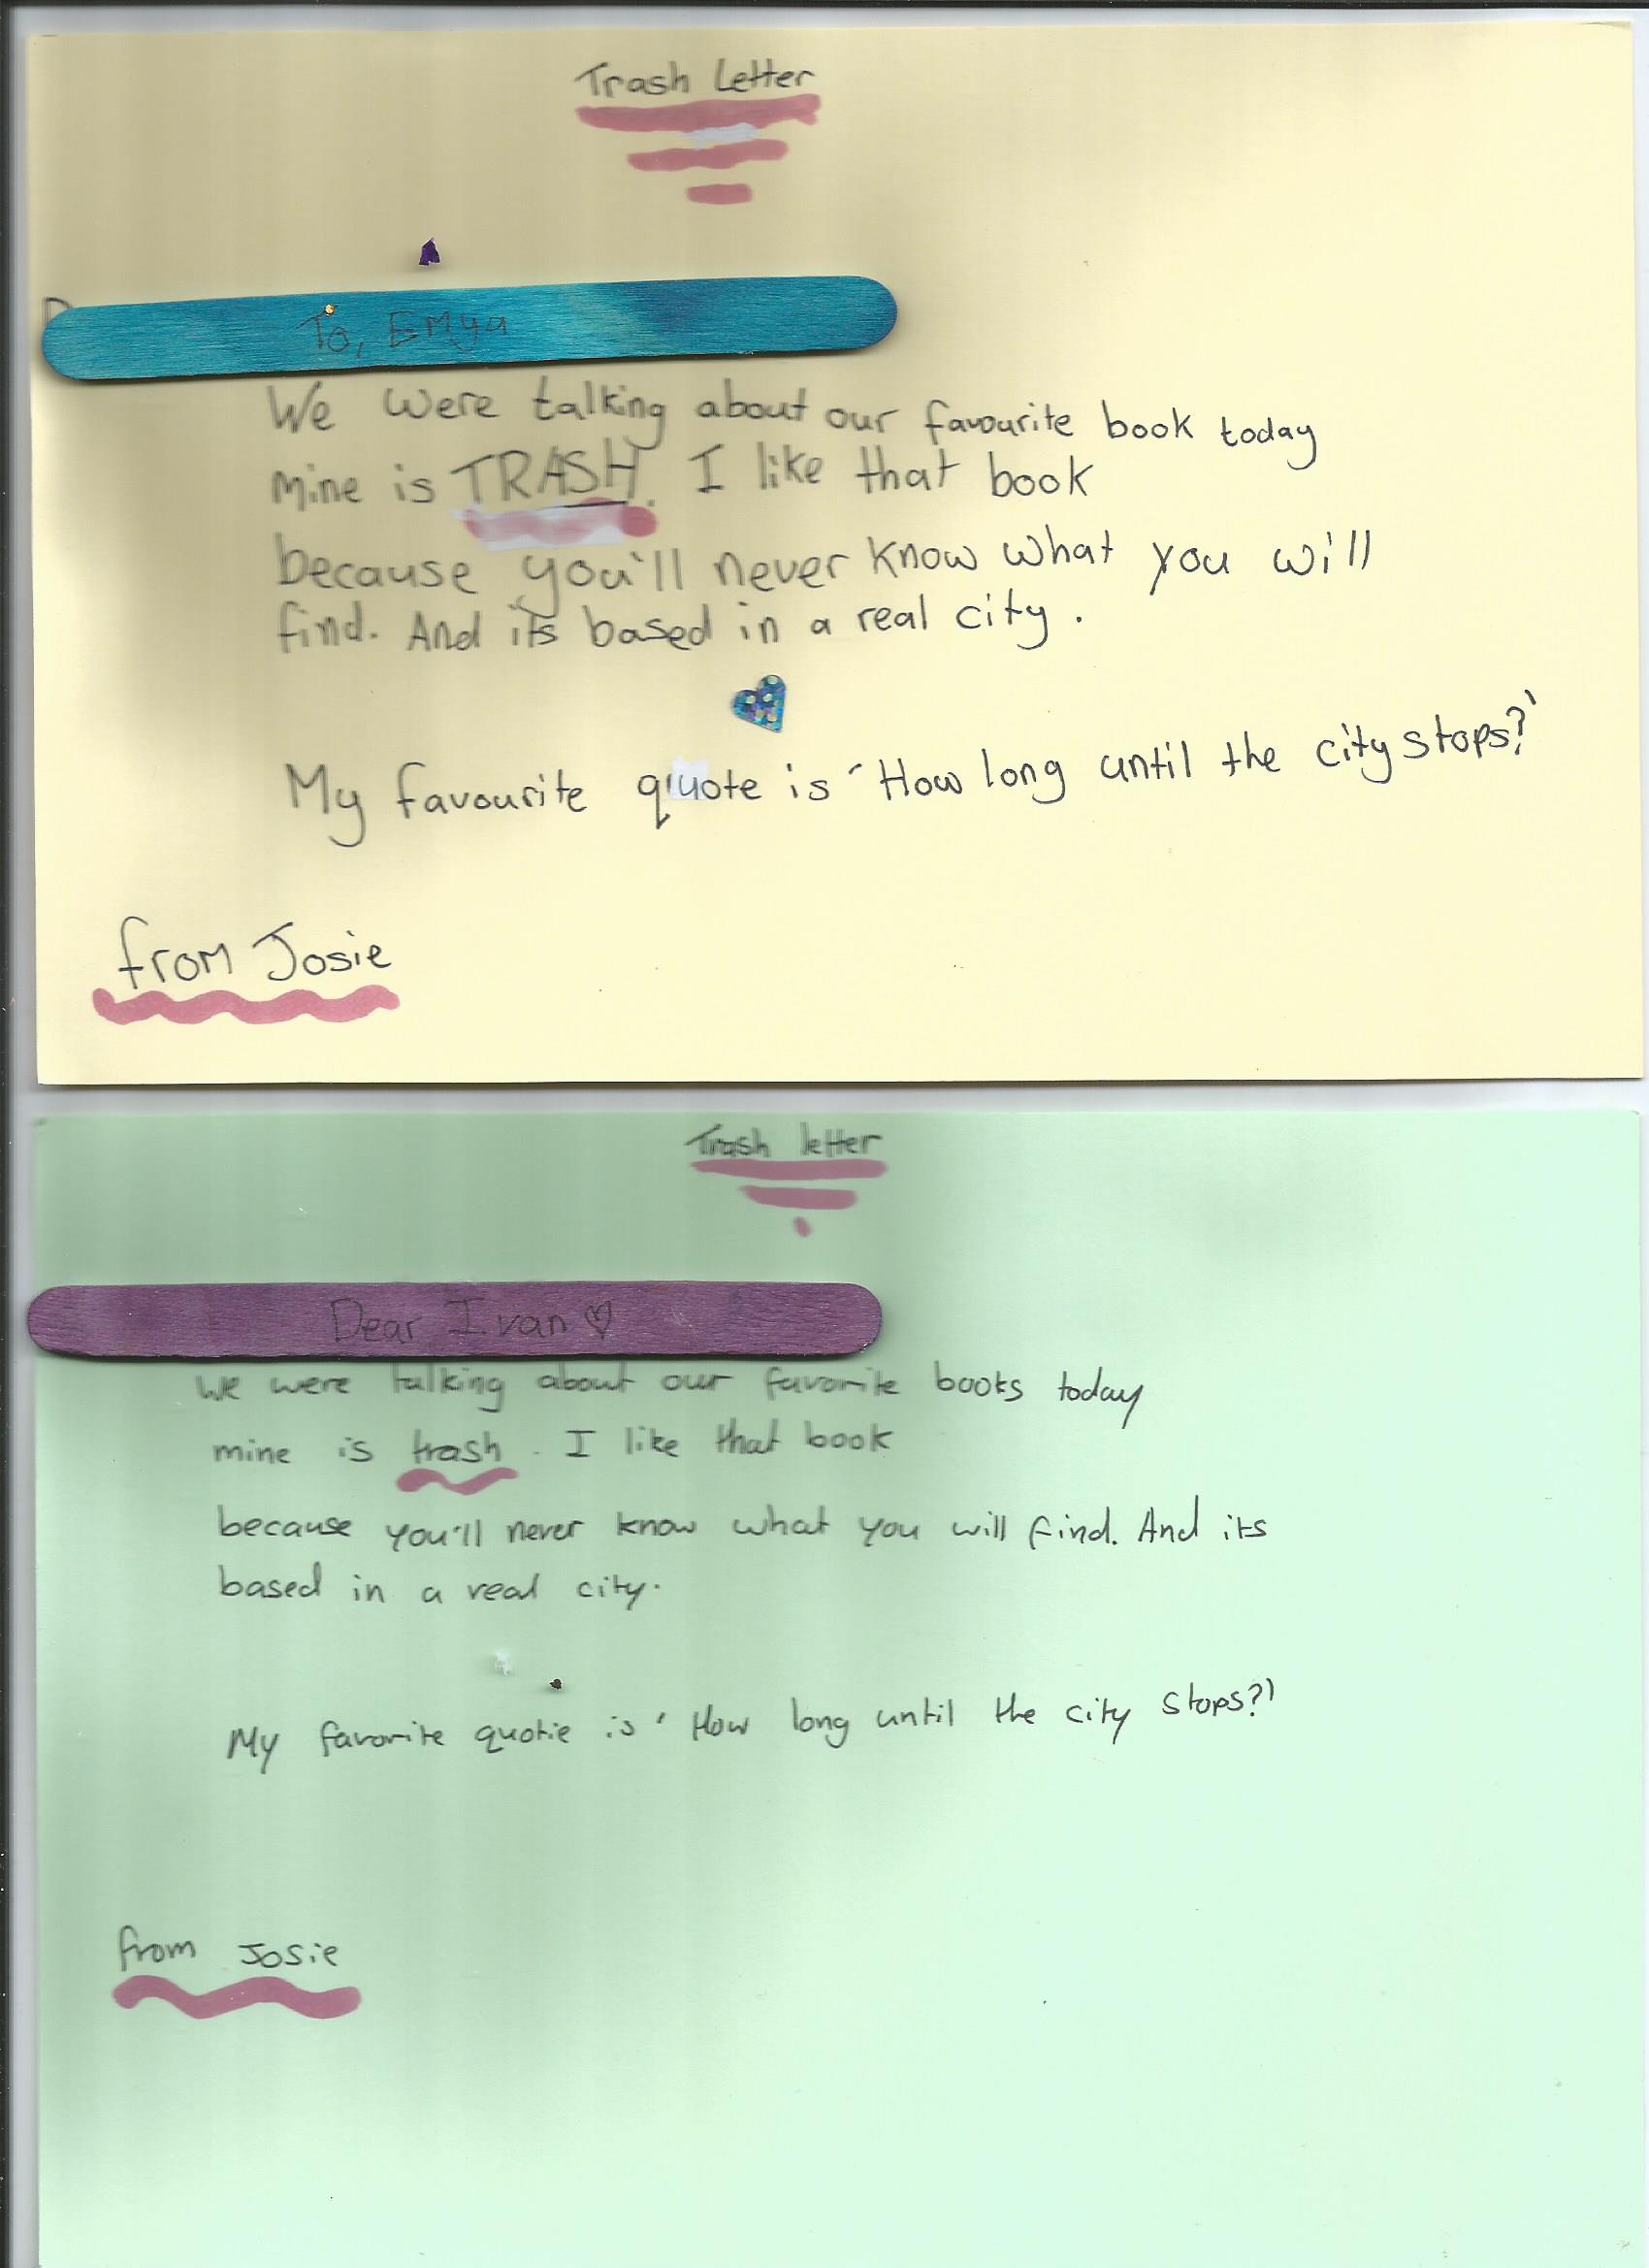 Trash Letter
To, Emya
We were talking about our favourite book today
mine is TRASH. I like that book
because you'll never know what you will
find. And its based in a real city.
My favourite quote is 'How long until the city stops?'
from Josie
Trash letter
Dear Ivan
We were talking about our favorite books today
mine is trash. I like that book
because you'll never know what you will find. And its
based in a real city.
My favorite quotie is 'How long until the city stops?'
from Josie